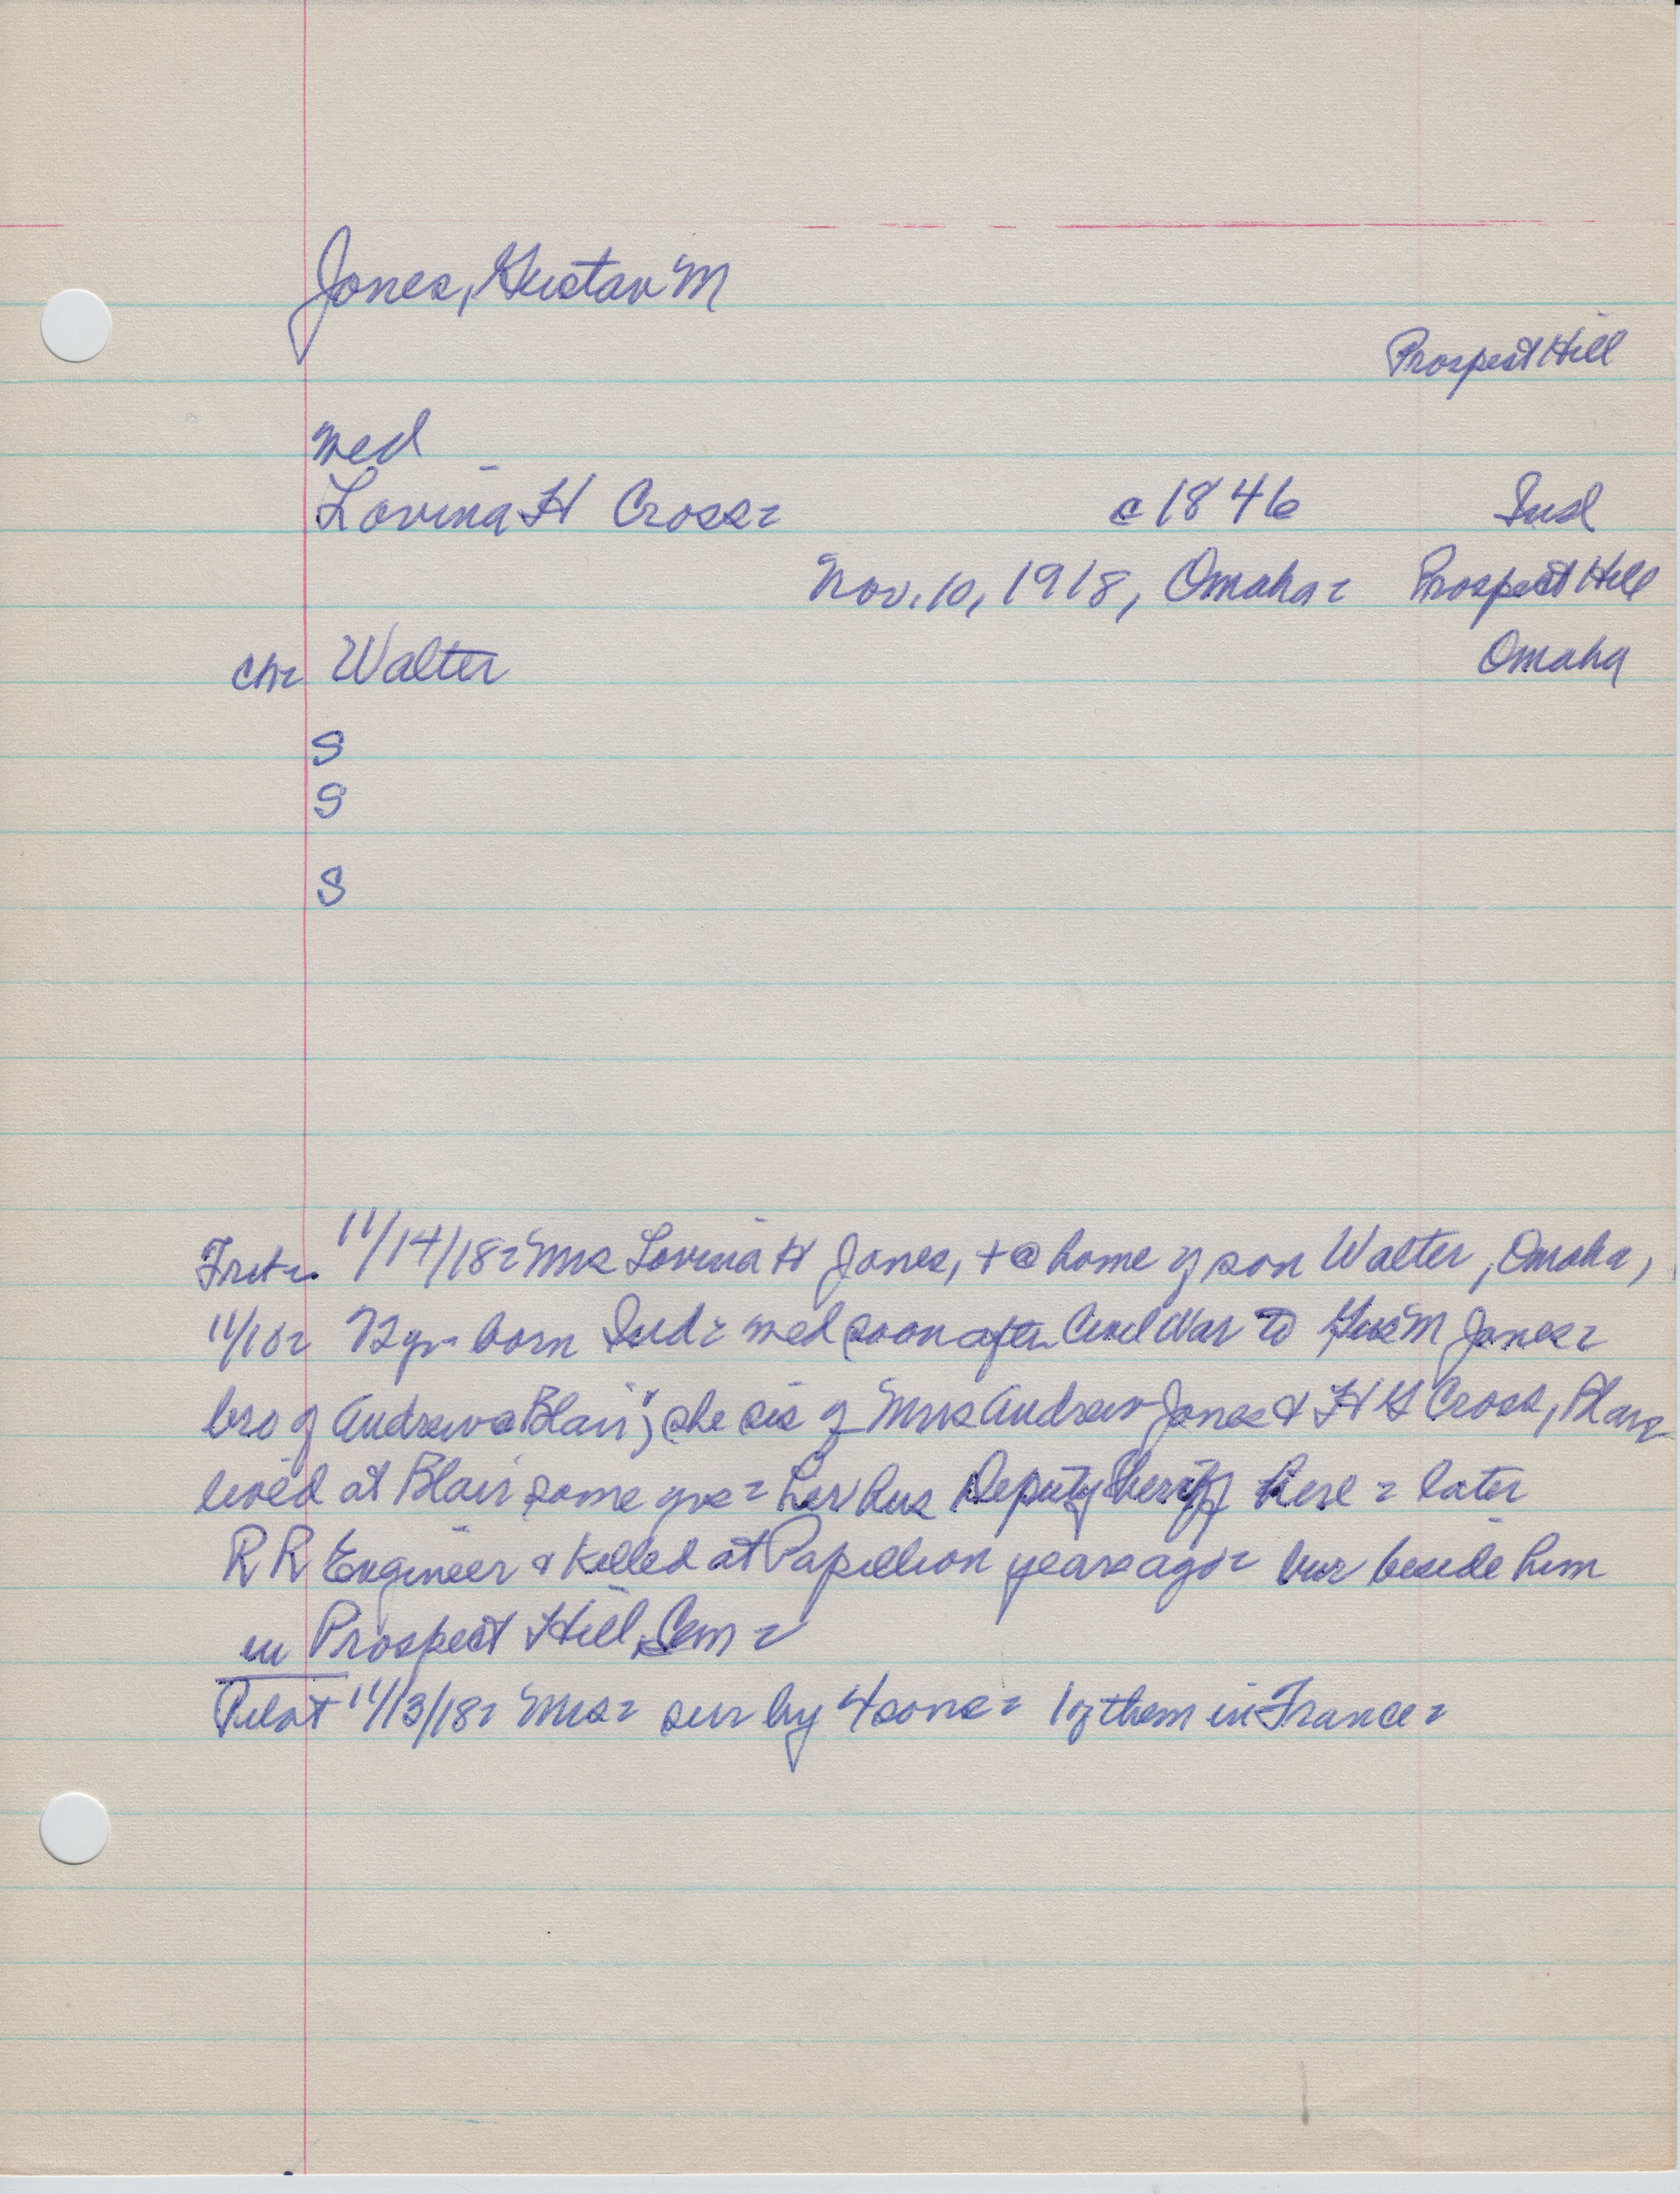 Jones, Gustav M
Prospect Hill
med
Lovina H Cross- c 1846 Ind
Nov. 10, 1918, Omaha- Prospect Hill
Omaha
ch- Walter
S
S
S
11/14/18- Mrs Lovina H Jones, + @ home of son Walter, Omaha,
11/10- 72 yr- born Ind- med soon after Civil War to Gus M Jones-
bro of Andrew @ Blair; she sis of Mrs Andrew Jones & H G Cross, Blair
lived at Blair some yrs- her hus Deputy Sheriff here- later
R R Engineer & killed at Papillion years ago- bur beside him
in Prospect Hill Cem-
Pilot 11/13/18- Mrs- sur by 4 sons- 1 of them in France-